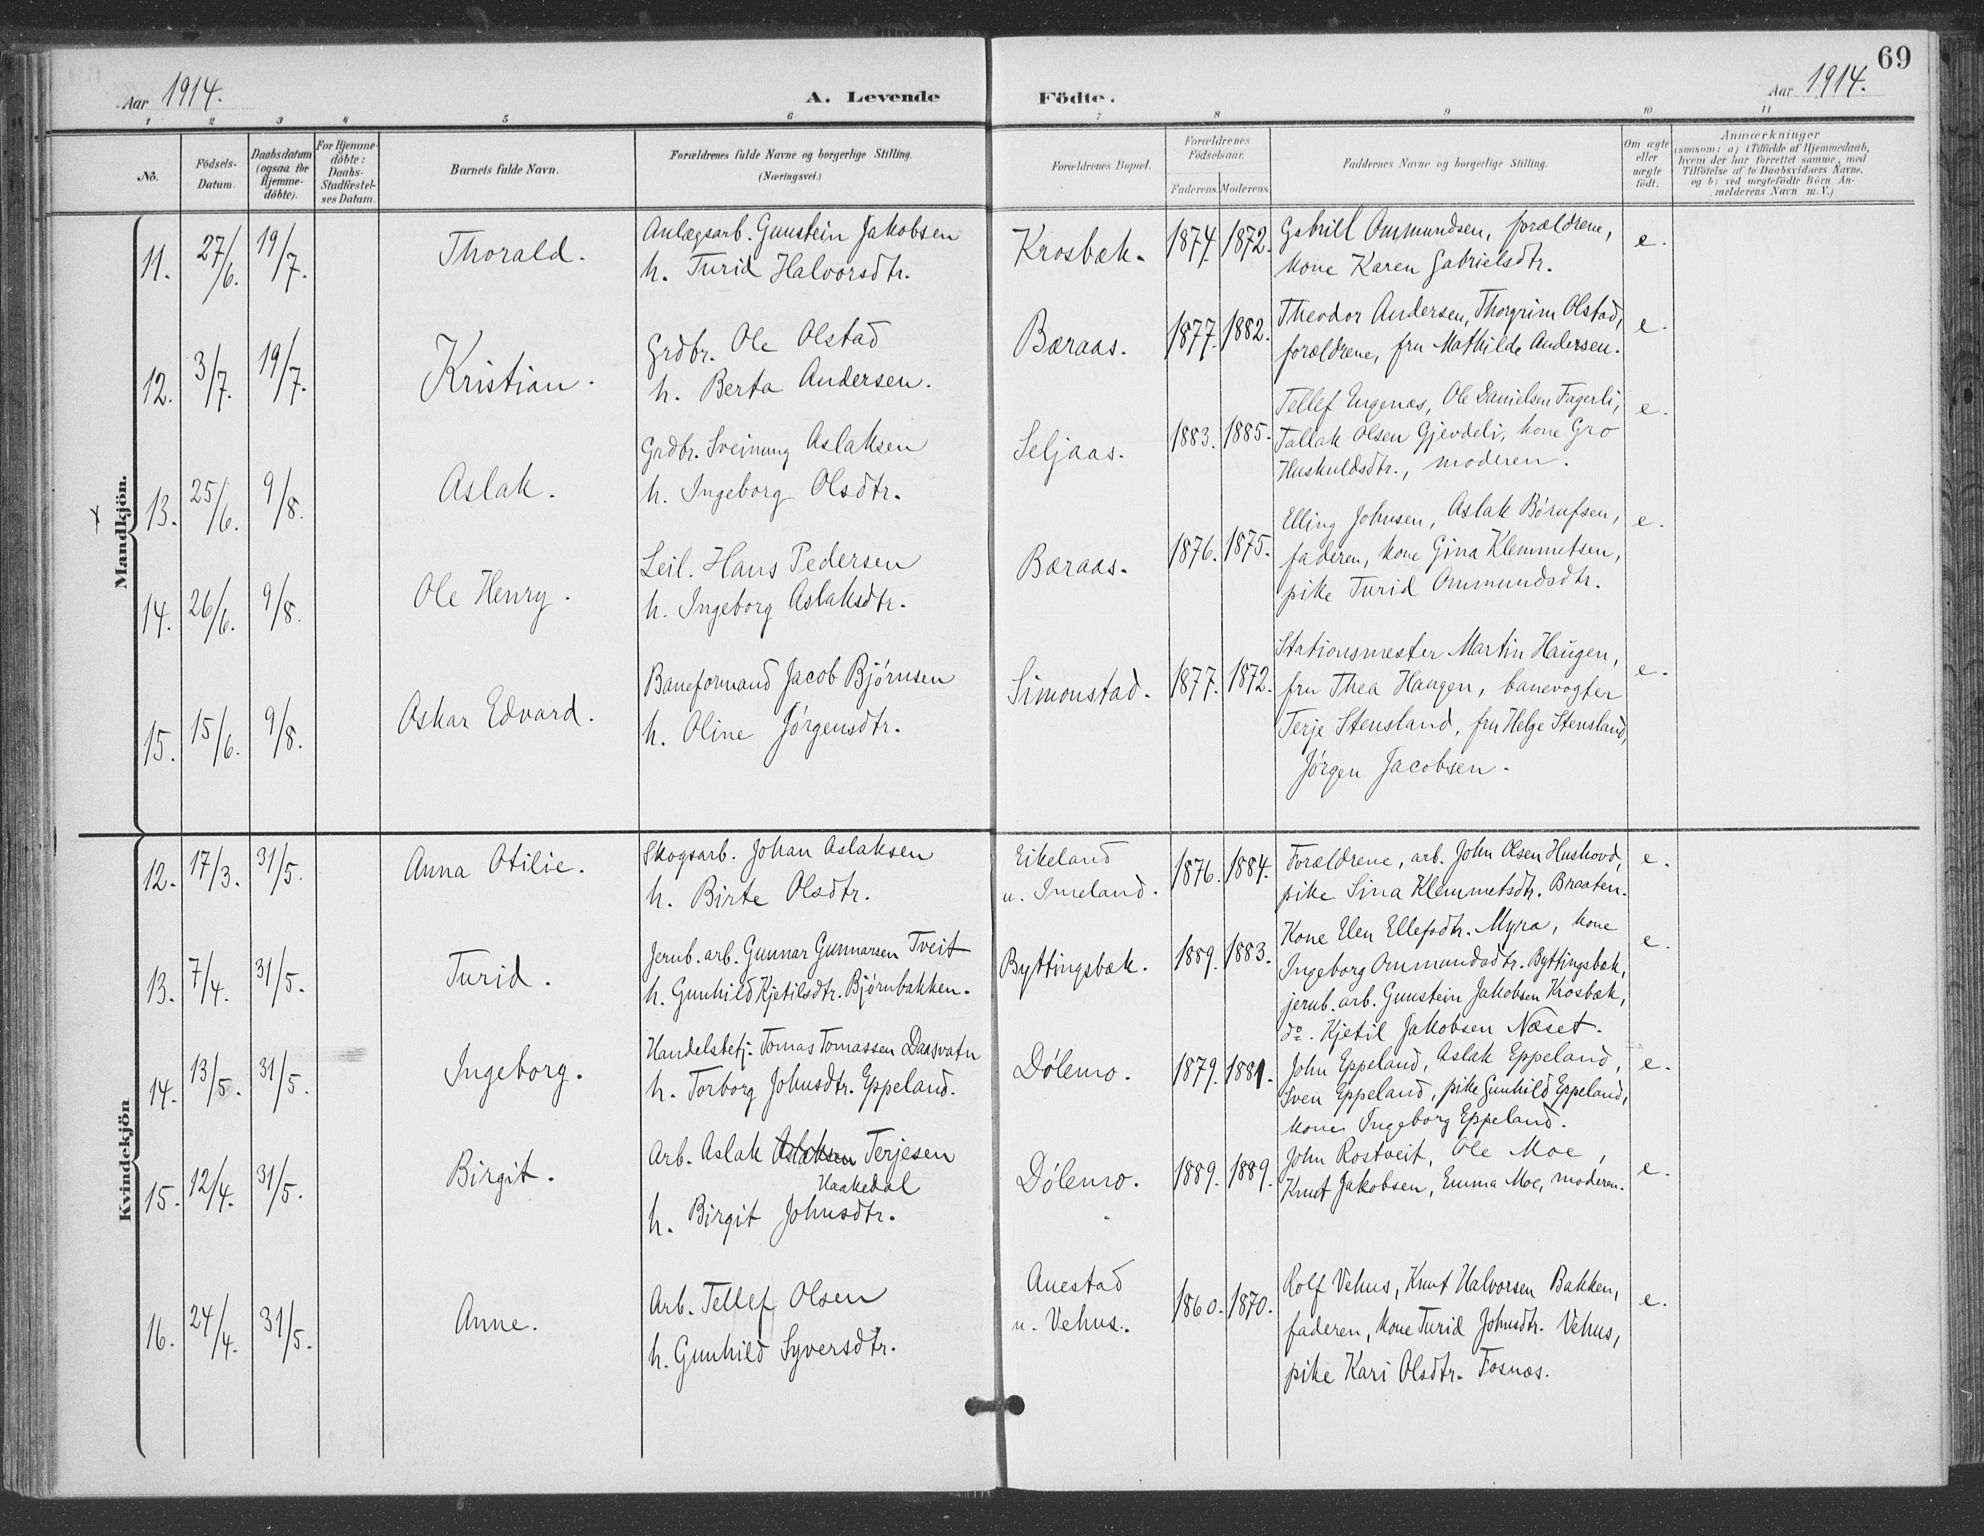 69
Aar 1914. A. Levende Födte. Aar 1914.
1 2 3 4 5 6 7 8 9 10 11
No.
Födsels-
Datum.
Daabsdatum
(ogsaa for
Hjemme-
döbte).
For Hjemme-
döbte:
Daabs-
Stadfæstel-
ses Datum.
Barnets fulde Navn.
Forældrenes fulde Navne og borgerlige Stilling.
(Næringsvei.)
Forældrenes Bopæl.
Forældrenes
Födselsaar.
Faderens. Moderens.
Faddernes Navne og borgerlige Stilling.
Om ægte
eller
uægte
födt.
Anmærkninger
(saasom: a) i Tilfælde af Hjemmedaab,
hvem der har forrettet samme, med
Tilföielse af to Daabsvidners Navne,
og b) ved uægtefödte Börn An-
melderens Navn m. V.)
Mandkjön.
11. 27/6. 19/7. Thorald.
Anlægsarb. Gunstein Jakobsen
h. Turid Halvorsdtr.
Krosbæk. 1874. 1872.
Gabriel Ommundsen, forældrene,
kone Karen Gabrielsdtr.
e.
12. 3/7. 19/7. Kristian.
Grdbr. Ole Olstad
h. Berta Andersen.
Bæraas. 1877. 1882.
Theodor Andersen, Thorgrim Olstad,
forældrene, fru Mathilde Andersen.
e.
13. 25/6. 9/8. Aslak.
Grdbr. Sveinung Aslaksen
h. Ingeborg Olsdtr.
Seljaas. 1883. 1885.
Tellef Engenæs, Ole Danielsen Fagerli,
Tallak Olsen Gjevdeli, kone Gro
Huskuldsdtr., moderen.
e.
14. 26/6. 9/8. Ole Henry.
Leil. Hans Pedersen
h. Ingeborg Aslaksdtr.
Bæraas. 1876. 1875.
Elling Johnsen, Aslak Børufsen,
faderen, kone Gina Klemmetsen,
pike Turid Ommundsdtr.
e.
15. 15/6. 9/8. Oskar Edvard.
Baneformand Jacob Bjørnsen
h. Oline Jørgensdtr.
Simonstad. 1877. 1872.
Stationsmester Martin Haugen,
fru Thea Haugen, banevogter
Terje Stensland, fru Helge Stensland,
Jørgen Jacobsen.
e.
Kvindekjön
12. 17/3. 31/5. Anna Otilie.
Skogsarb. Johan Aslaksen
h. Birte Olsdtr.
Eikeland
u. Imeland.
1876. 1884.
Forældrene, arb. John Olsen Huskovd,
pike Sina Klemmetsdtr. Braaten.
e.
13. 7/4. 31/5. Turid.
Jernb. arb. Gunnar Gunnarsen Tveit
h. Gunhild Kjetilsdtr. Bjørnbakken.
Byttingsbæk. 1889. 1883.
Kone Elen Ellefsdtr. Myra, kone
Ingeborg Ommundsdtr. Byttingsbæk,
jernb. arb. Gunstein Jakobsen Krosbæk,
do. Kjetil Jakobsen Næset.
e.
14. 13/5. 31/5. Ingeborg.
Handelsbetj. Tomas Tomassen Daasvatn
h. Torborg Johnsdtr. Eppeland.
Dølemo. 1879. 1881.
John Eppeland, Aslak Eppeland,
Sven Eppeland, pike Gunhild Eppeland,
kone Ingeborg Eppeland.
e.
15. 12/4. 31/5. Birgit.
Arb. Aslak Aslaksen Terjesen
Haakedal
h. Birgit Johnsdtr.
Dølemo. 1889. 1889.
John Rostveit, Ole Moe,
Knut Jakobsen, Emma Moe, moderen.
e.
16. 24/4. 31/5. Anne.
Arb. Tellef Olsen
h. Gunhild Syversdtr.
Anestad
u. Vehus.
1860. 1870.
Rolf Vehus, Knut Halvorsen Bakken,
faderen, kone Turid Johnsdtr. Vehus,
pike Kari Olsdtr. Fosnæs.
e.